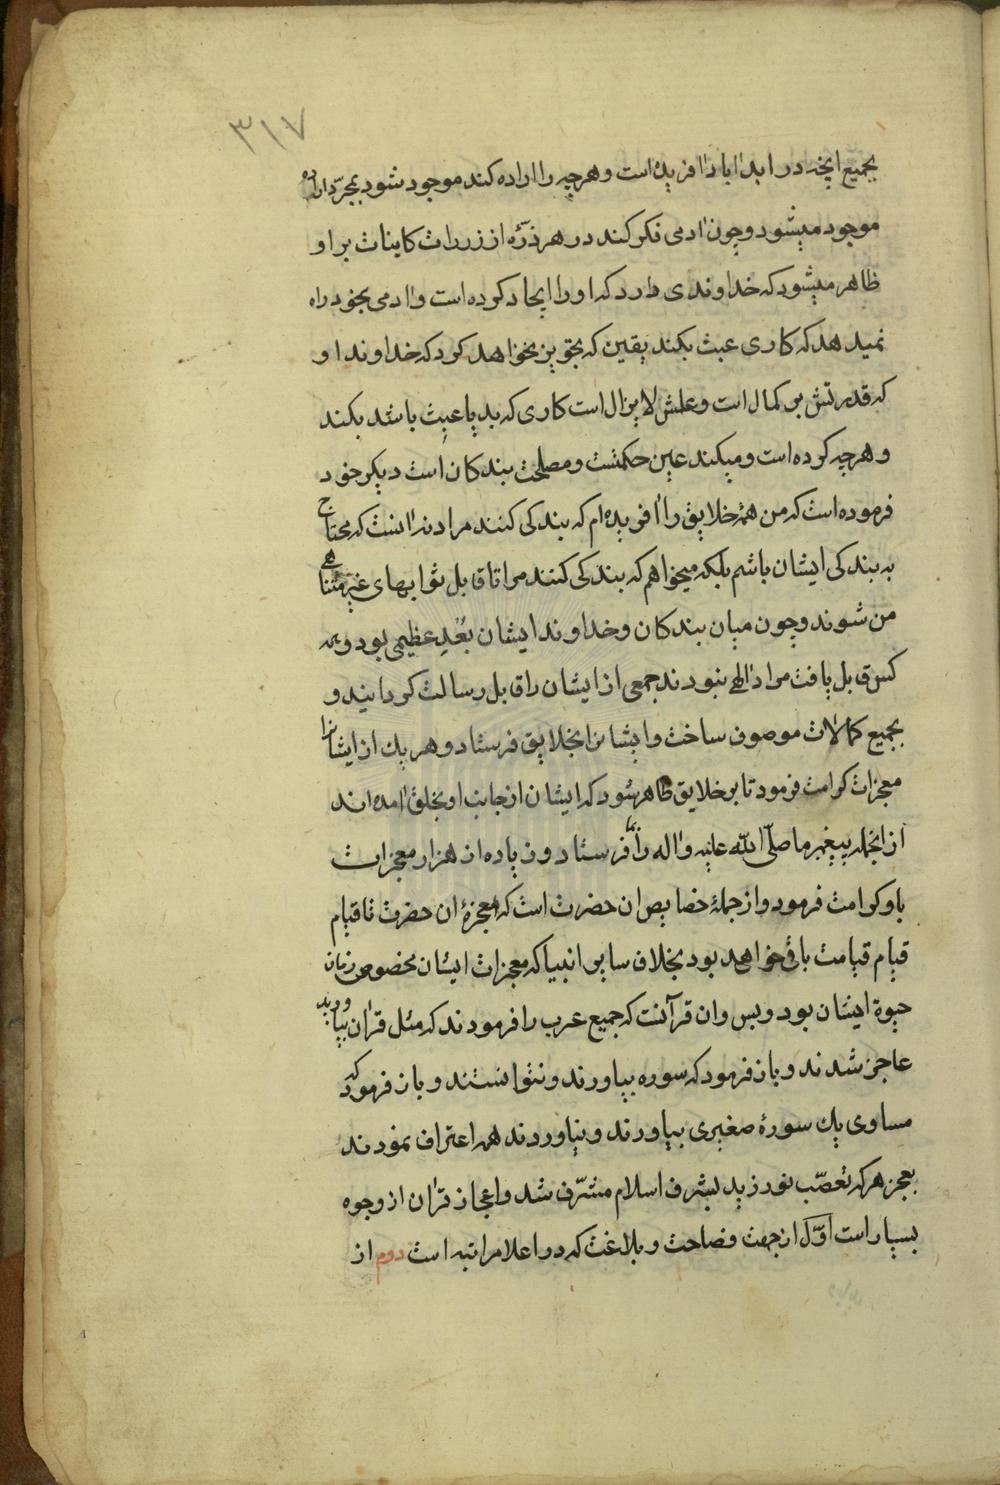 ۳۱۷
بجمیع انچه در ابدا اباد افریده است و هرچه را اراده کند موجود شود بمجرّد اراده
موجود میشود و چون ادمی فکر کند در هر ذرّه از زرات کاینات بر او
ظاهر میشود که خداوندی دارد که او را ایجاد کرده است و ادمی بخود راه
نمیدهد که کاری عبث بکند یقین که تجویز نخواهد کرد که خداوند او
که قدرتش بر کمال است و علمش لایزال است کاری که بد یا عبث باشد بکند
و هرچه کرده است و میکند عین حکمتست و مصلحت بندکان است دیکر خود
فرموده است که من همهٔ خلایق را افریده ام که بندکی کنند مرا دنه انست که محتاج
به بندکی ایشان باشم بلکه میخواهم که بندکی کنند مرا تا قابل ثوابهای غیر متناهی
من شوند و چون میان بندکان و خداوند ایشان بُعْدِ عظیمی بود و همه
کس قابل یافت مراد الهی نبودند جمعی از ایشان را قابل رسالت کردانیند و
بجمیع کمالات موصوف ساخت و ایشانرا بخلایق فرستاد و هر یك از ایشانرا
معجزات کرامت فرمود تا بر خلایق ظاهر شود که ایشان از جانب او بخلق امده اند
از انجمله پیغمبر ما صلّی اللّه علیه و اله را بما فرستاد و زیاده از هزار معجزات
باو کرامت فرمود و از جملهٔ خصایص ان حضرت است که معجزهٔ ان حضرت تا قیام
قیام قیامت باقی خواهد بود بخلاف سایر انبیا که معجزات ایشان مخصوص زمان
حیوة ایشان بود و بس و ان قرآنست که جمیع عرب را فرمودند که مثل قران بیاورید
عاجز شدند و باز فرمود که سوره بیاورند و نتوانستند و باز فرمود که
مساوی یك سورهٔ صغیری بیاورند و نیاوردند همه اعتراف نمودند
بعجز هر که تعصّب نورزید بشرف اسلام مشرّف شد و اعجاز قران از وجوه
بسیار است اوّل از جهت فصاحت و بلاغت که در اعلا مراتبه است دوم از